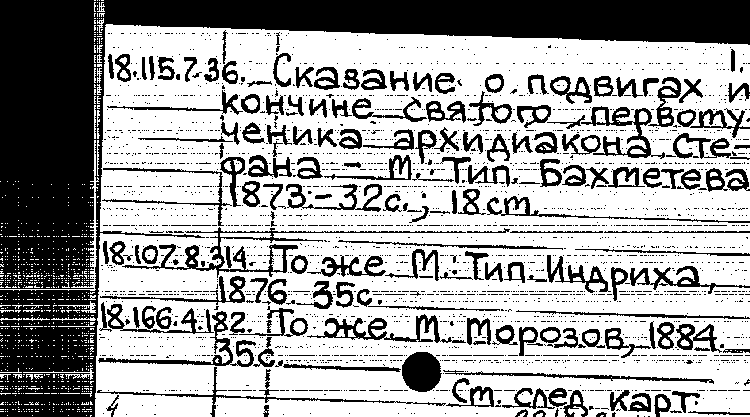 1.
18.115.7.36. Сказание о подвигах и
кончине святого первому-
ченика архидиакона Сте-
фана. – М.: Тип. Бахметева
1873. – 32с.; 18см.
18.107.8.314. То же. М.: Тип. Индриха,
1876. 35с.
18.166.4.182. То же. М.: Морозов, 1884.
35с.
Ст. след. карт.